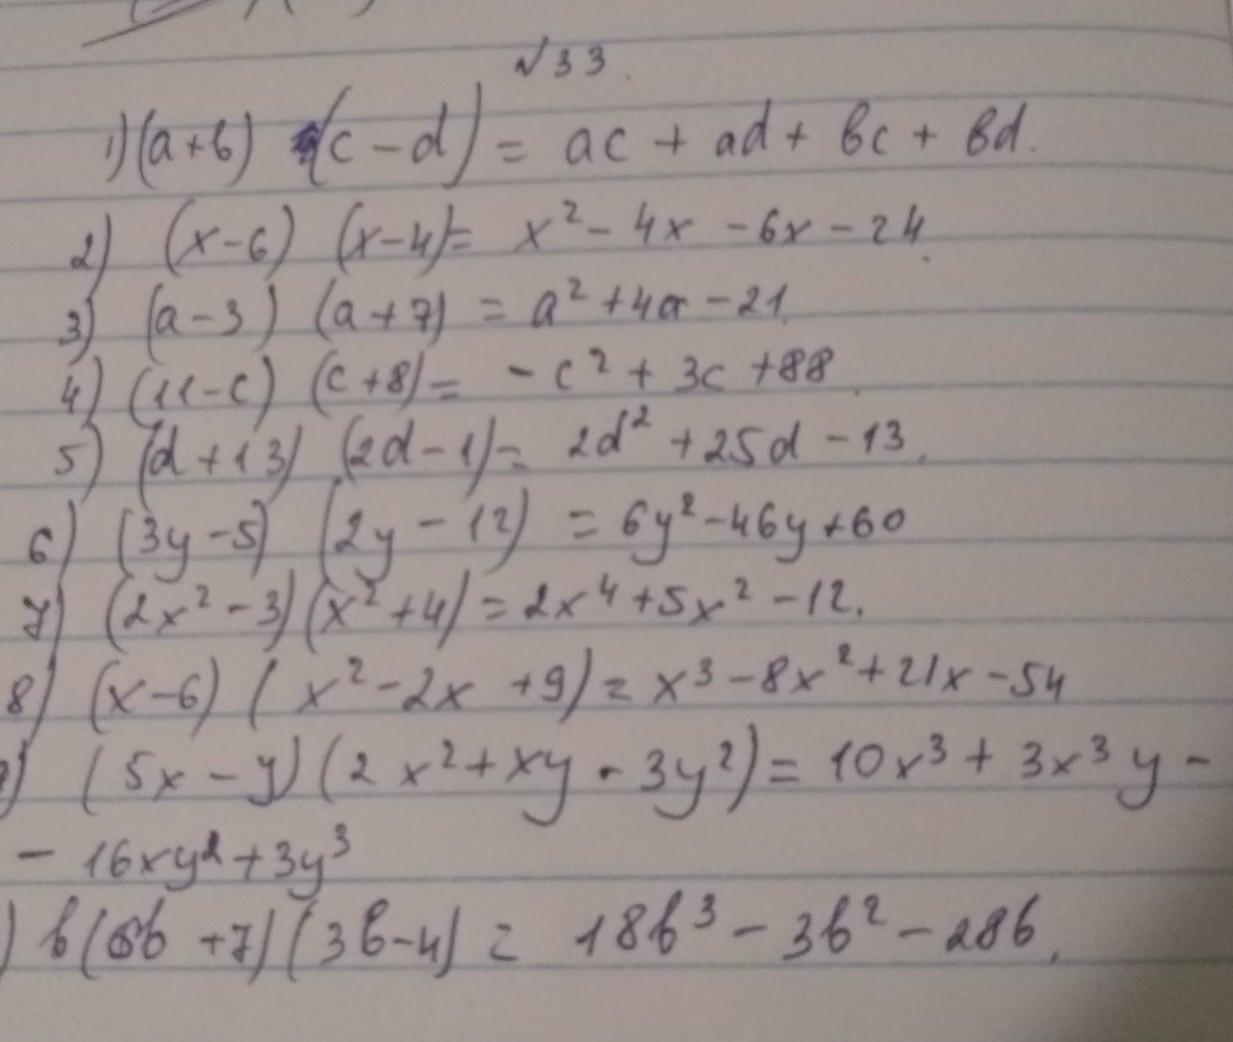 №33.
1) (a+b) (c-d) = ac + ad + bc + bd.
2) (x-6) (x-4)= x² - 4x - 6x - 24.
3) (a-3) (a+7) = a² + 4a - 21.
4) (11-c) (c+8) = - c² + 3c + 88.
5) (d+13) (2d-1) = 2d² + 25d - 13.
6) (3y-5) (2y - 12) = 6y² - 46y + 60
7) (2x² - 3) (x² + 4) = 2x⁴ + 5x² - 12.
8) (x-6) (x² - 2x + 9) = x³ - 8x² + 21x - 54
) (5x - y) (2x² + xy - 3y²) = 10x³ + 3x³y -
- 16xy² + 3y³
) b(6b + 7) (3b - 4) = 18b³ - 3b² - 28b.